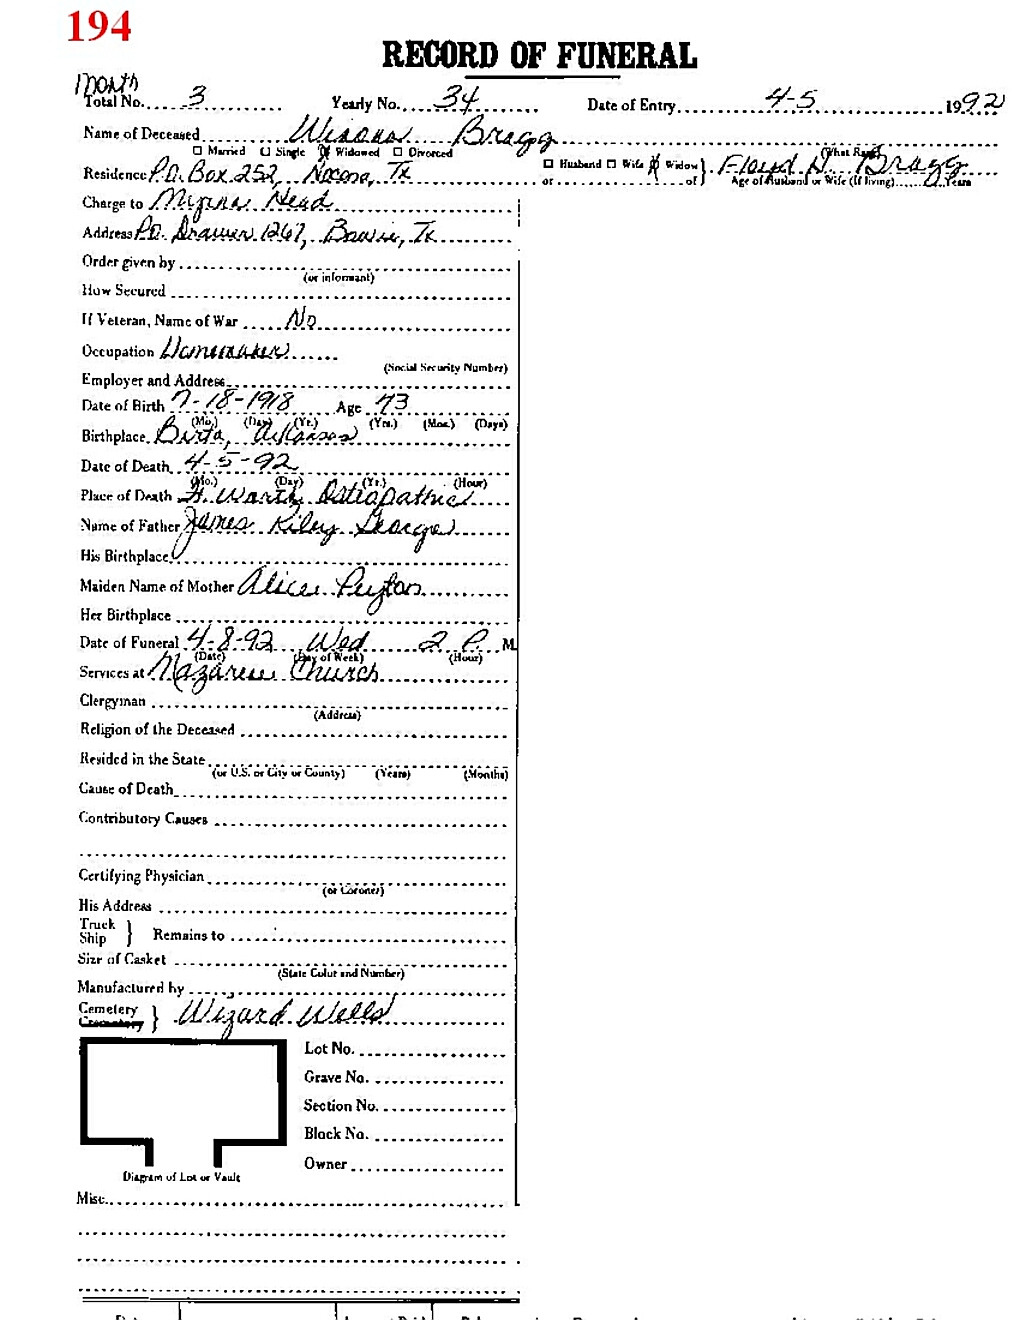 194
RECORD OF FUNERAL
Month
Total No. 3 Yearly No. 34 Date of Entry 4-5 1992
Name of Deceased Winona Bragg
(What Race)
☐ Married ☐ Single ☒ Widowed ☐ Divorced
☐ Husband ☐ Wife ☒ Widow of Floyd D. Bragg
Residence P.O. Box 252, Nocona, Tx
or of Age of Husband or Wife (If living) Years
Charge to Myrna Head
Address P.O. Drawer 1267, Bowie, Tx
Order given by
(or informant)
How Secured
If Veteran, Name of War No
Occupation Homemaker
(Social Security Number)
Employer and Address
Date of Birth 7-18-1918 Age 73
(Mo.) (Day) (Yr.) (Yrs.) (Mos.) (Days)
Birthplace Birta, Arkansas
Date of Death 4-5-92
(Mo.) (Day) (Yr.) (Hour)
Place of Death Ft. Worth Osteopathic
Name of Father James Riley George
His Birthplace
Maiden Name of Mother Alice Peyton
Her Birthplace
Date of Funeral 4-8-92 Wed 2 P. M.
(Date) (Day of Week) (Hour)
Services at Nazarene Church
Clergyman
(Address)
Religion of the Deceased
Resided in the State
(or U.S. or City or County) (Years) (Months)
Cause of Death
Contributory Causes
Certifying Physician
(or Coroner)
His Address
Truck
Ship } Remains to
Size of Casket
(State Color and Number)
Manufactured by
Cemetery
Crematory } Wizard Wells
Lot No.
Grave No.
Section No.
Block No.
Owner
Diagram of Lot or Vault
Misc.